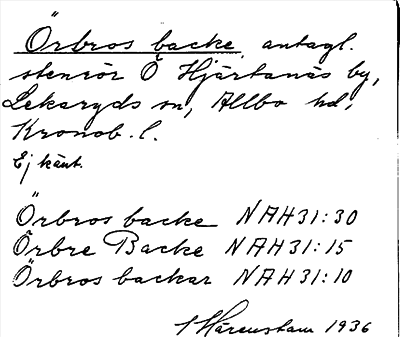 Örbros backe, antagl.
stenrör Ö Hjärtanäs by,
Lekaryds sn, Allbo hd,
Kronob. l.
Ej känt.
Örbros backe NAH 31:30
Örbre Backe NAH 31:15
Örbros backar NAH 31:10
Härenstam 1936